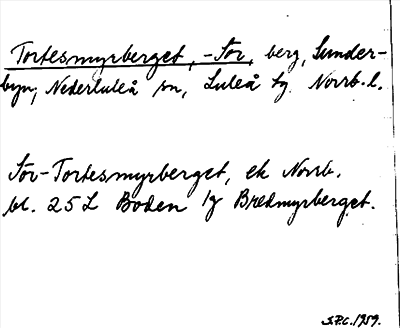 Tortesmyrberget, -Stor, berg, Sunder-
byn, Nederluleå sn, Luleå tg. Norrb. l.
Stor-Tortesmyrberget, ek Norrb.
bl. 25 L Boden
Bredmyrberget.
S.P.C. 1959.